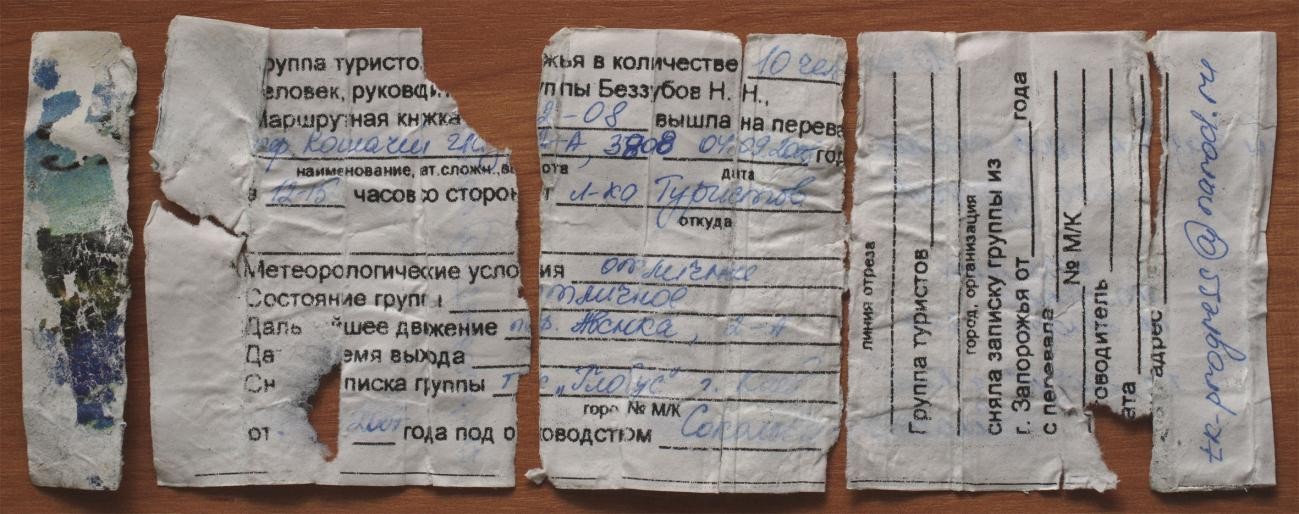 руппа туристо жья в количестве 10 чел
еловек, руковди ппы Беззубов Н. Н.,
Маршрутная книжка 2-08 вышла на перева
Кошачий 2-А, 3808 04.09.2008 год
наименование, ат.сложн.,вы ота дата
в 12-15 часов со сторон т л-ка Туристов
откуда
Метеорологические усло ия отличные
Состояние группы тличное
Даль йшее движение пер. Жёнка, 2-А
Да емя выхода
Сн писка группы т/с „Глобус" г. Киев
горо № М/К
от 200 года под о ководством
линия отреза
Группа туристов
город, организация
сняла записку группы из
г. Запорожья от года
с перевала
№ М/К
оводитель
ата
адрес